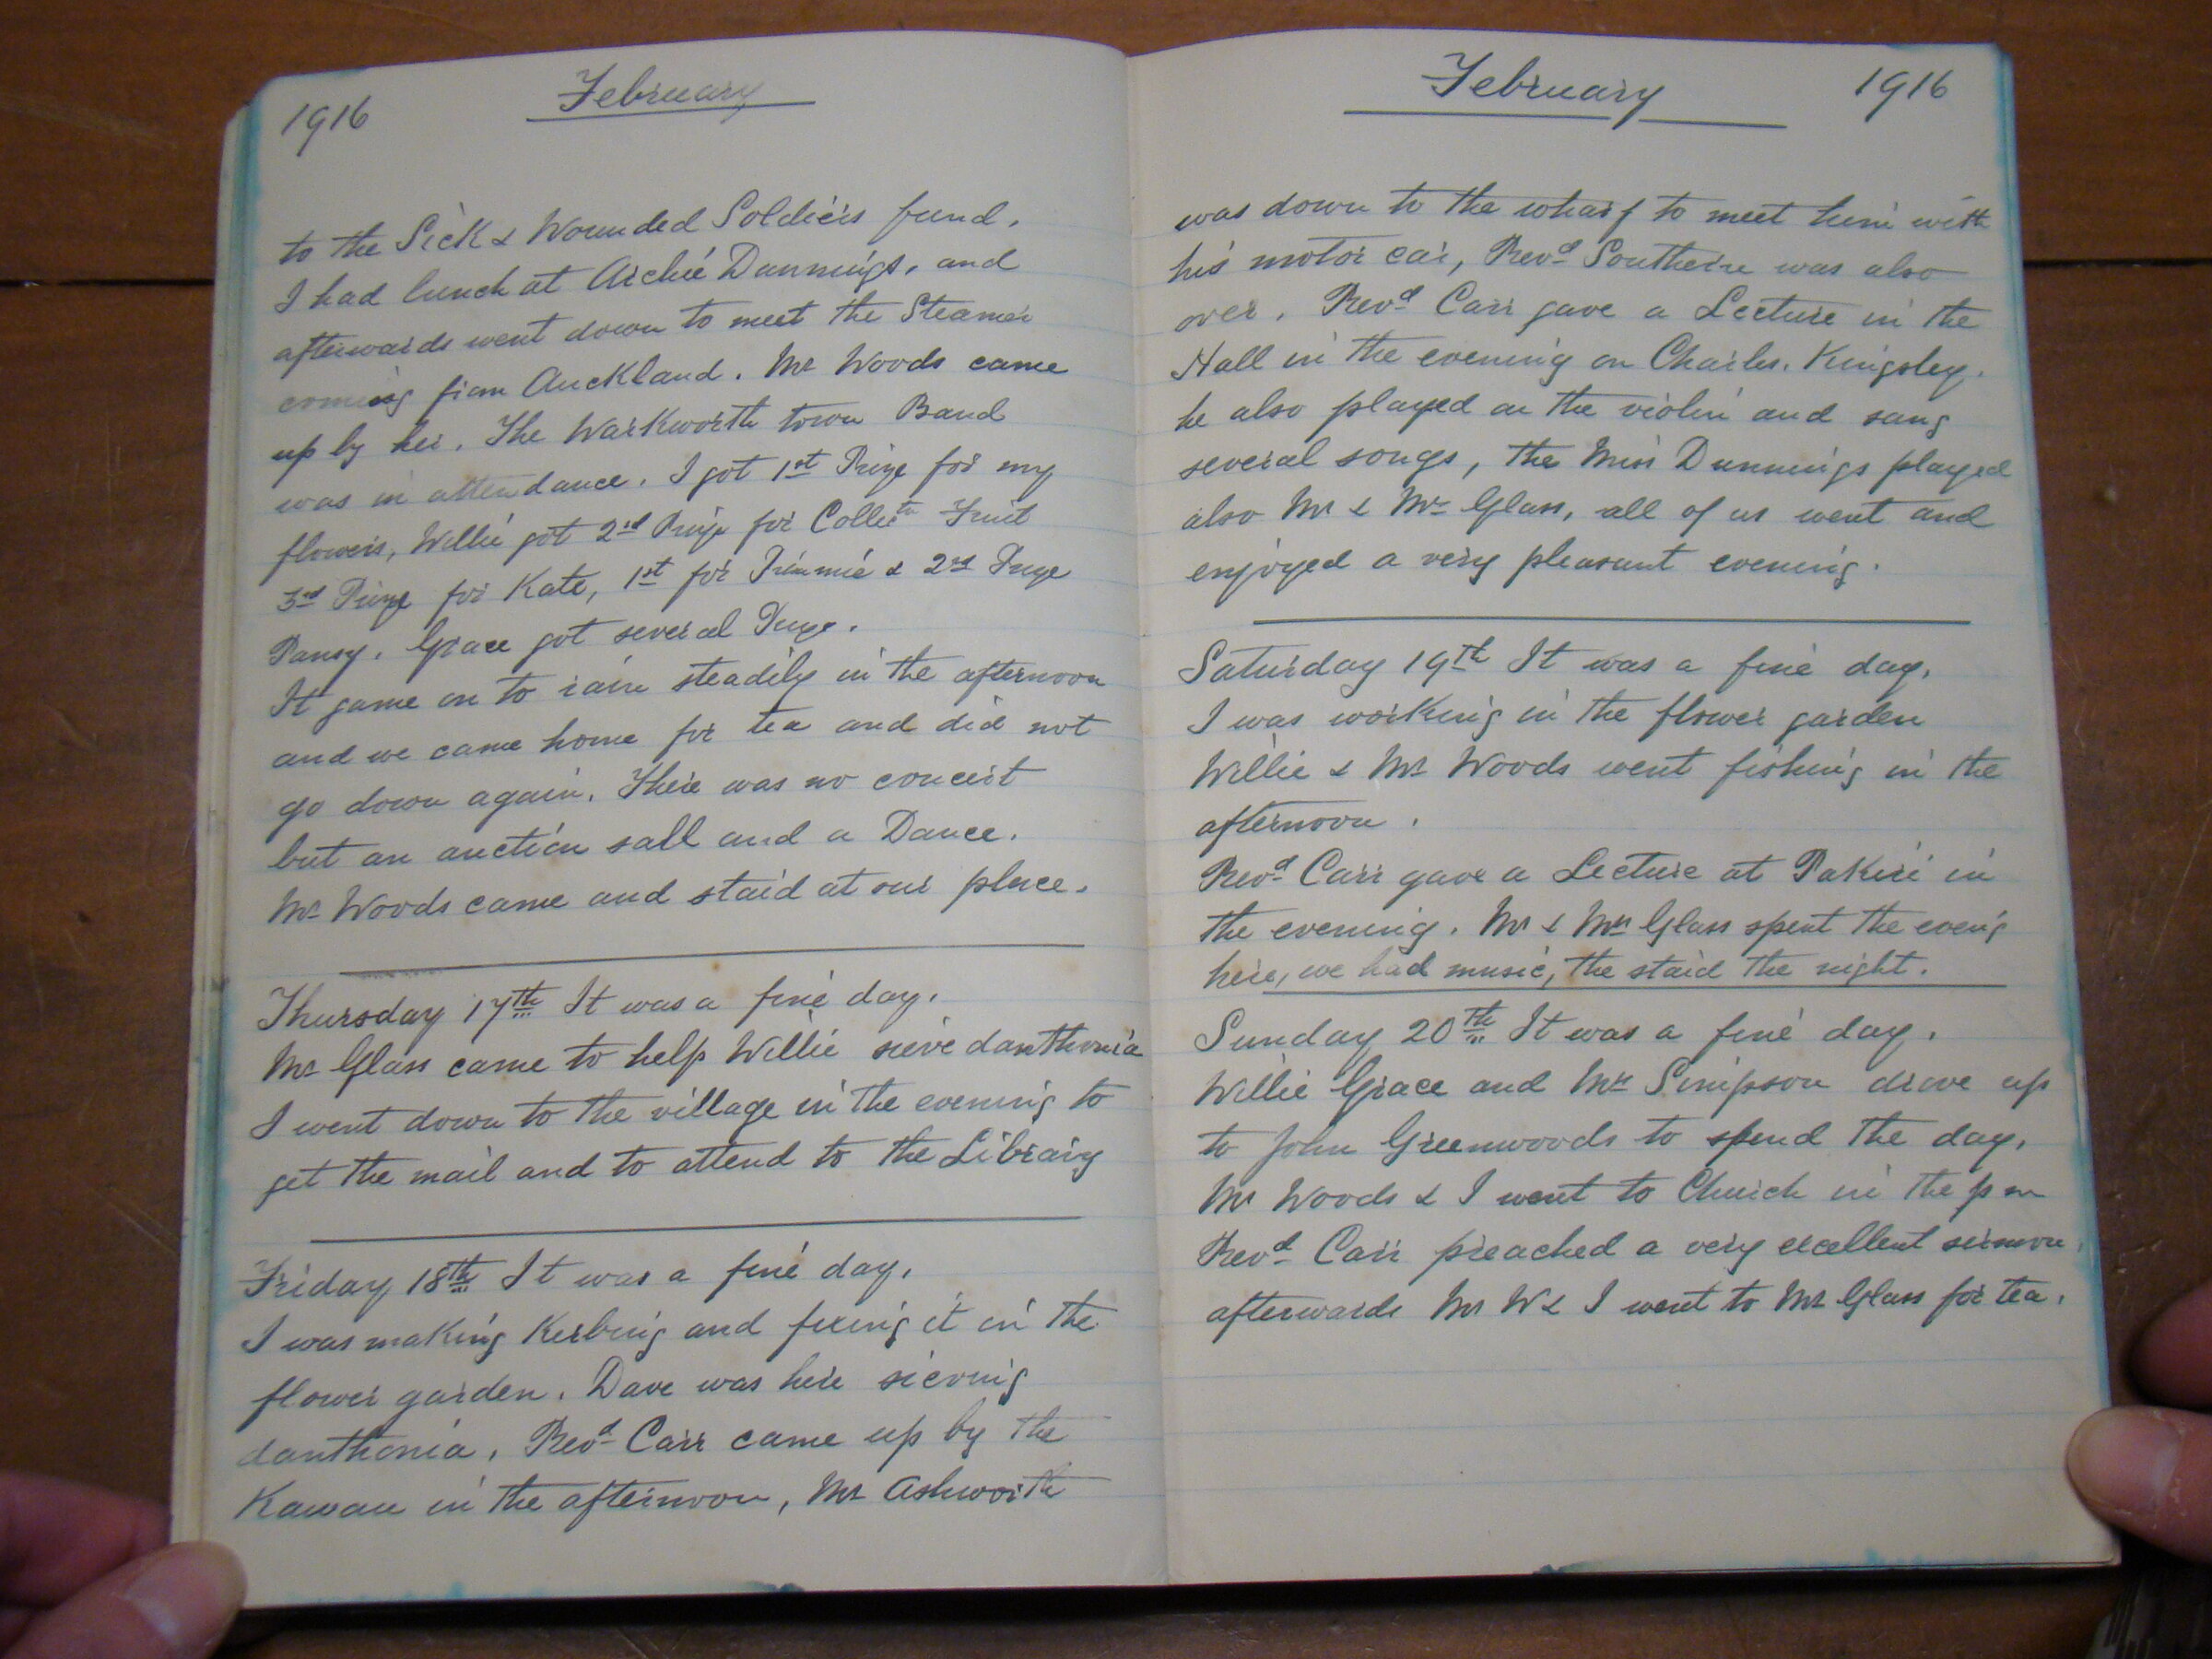 1916 February
to the Sick & Wounded Soldiers fund.
I had lunch at Archie Dunnings, and
afterwards went down to meet the Steamer
coming from Auckland. Mr Woods came
up by her. The Warkworth town Band
was in attendance. I got 1st Prize for my
flowers, Willie got 2nd Prize for Collectn Fruit
3rd Prize for Kate, 1st for Primmie & 2nd Prize
Pansy. Grace got several Prize.
It game on to rain steadily in the afternoon
and we came home for tea and did not
go down again. There was no concert
but an auction sall and a Dance.
Mr Woods came and staid at our place.
Thursday 17th It was a fine day.
Mr Glass came to help Willie sieve danthonia
I went down to the village in the evening to
get the mail and to attend to the Library
Friday 18th It was a fine day.
I was making Kerbing and fixing it in the
flower garden. Dave was here sieving
danthonia. Revd Carr came up by the
Kawau in the afternoon, Mr Ashworth
February 1916
was down to the wharf to meet him with
his motor car, Revd Southern was also
over. Revd Carr gave a Lecture in the
Hall in the evening on Charles. Kingsley.
he also played on the violin and sang
several songs, the Miss Dunnings played
also Mr & Mrs Glass, all of us went and
enjoyed a very pleasant evening.
Saturday 19th It was a fine day.
I was working in the flower garden
Willie & Mr Woods went fishing in the
afternoon.
Revd Carr gave a Lecture at Pakiri in
the evening. Mr & Mrs Glass spent the eveng
here, we had music, the staid the night.
Sunday 20th It was a fine day.
Willie Grace and Mrs Simpson drove up
to John Greenwoods to spend the day.
Mr Woods & I went to Church in the p m
Revd Carr preached a very excellent sermon,
afterwards Mr W & I went to Mr Glass for tea.